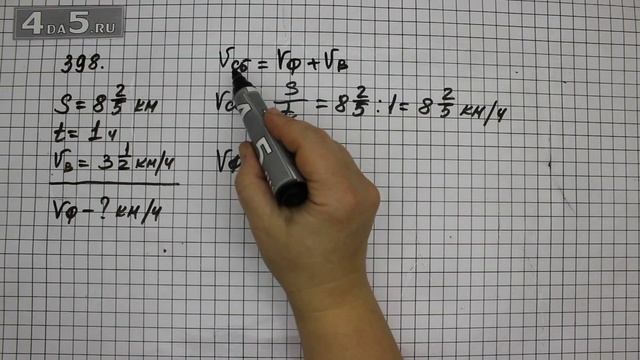 4DA5.RU
398.
S = 8 2/5 км
t = 1 ч
Vв = 3 1/2 км/ч
Vф - ? км/ч
Vсб = Vф + Vв
Vс = S/t = 8 2/5 : 1 = 8 2/5 км/ч
Vф